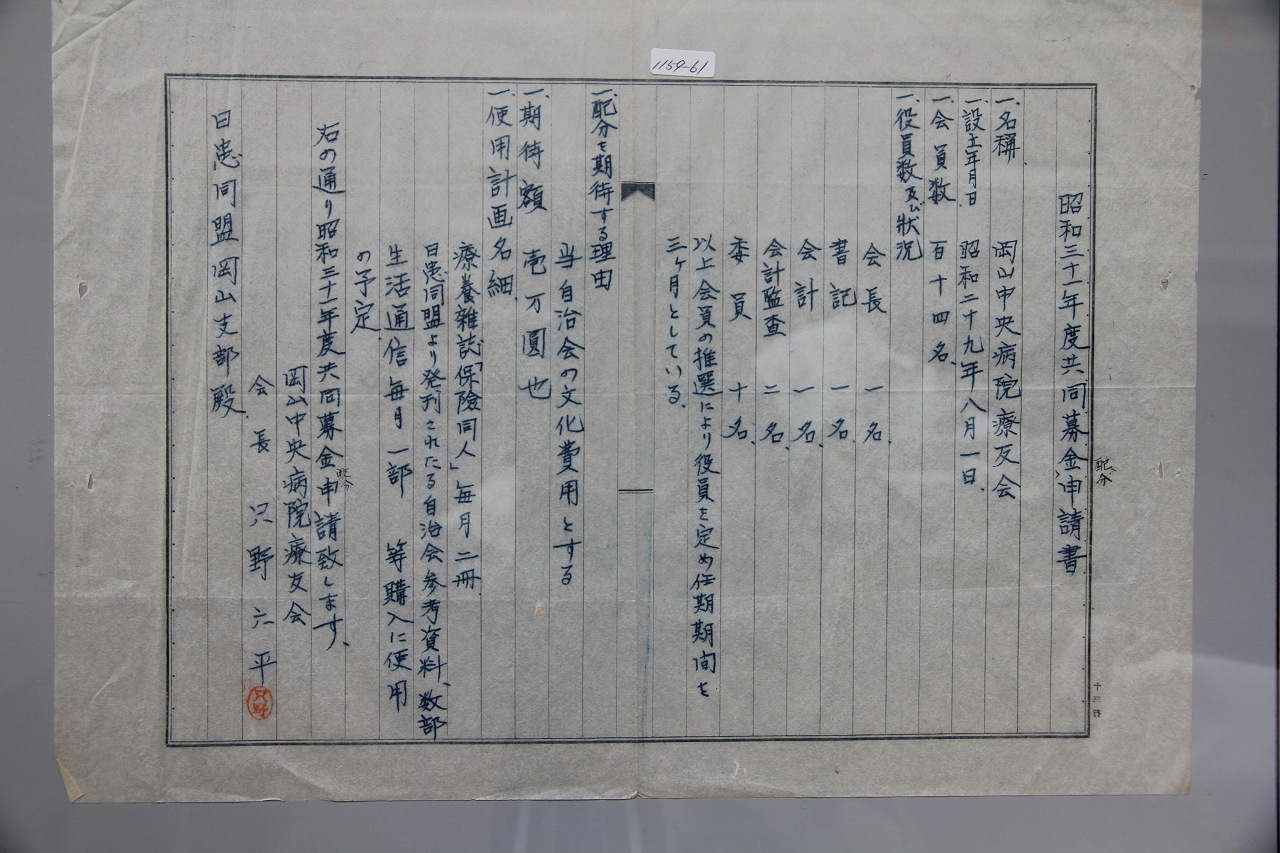 1159-61
昭和三十一年度共同募金配分申請書
一、名稱　岡山中央病院療友会
一、設立年月日　昭和二十九年八月一日、
一、会員数　百十四名、
一、役員数及び状況
会長　一名、
書記　一名、
会計　一名、
会計監査　二名、
委員　十名、
以上会員の推選により役員を定め任期期間を
三ヶ月としている、
一、配分を期待する理由
当自治会の文化費用とする
一、期待額　壱万圓也
一、使用計画名細
療養雑誌「保険同人」毎月二冊
日患同盟より発刊されたる自治会参考資料、数部
生活通信毎月一部　等購入に使用
の予定、
右の通り昭和三十一年度共同募金配分申請致します、
岡山中央病院療友会
会長　只野六平
只野
日患同盟岡山支部殿